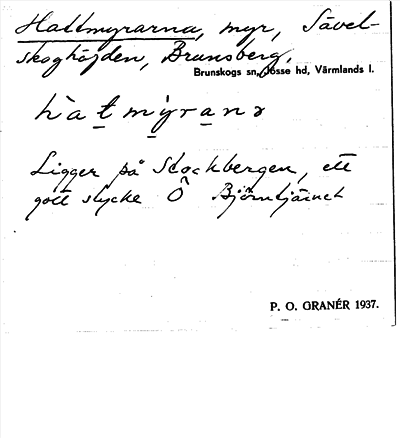 Hattmyrarna, myr, Sävel-
skoghöjden, Brunsberg,
Brunskogs sn, Jösse hd, Värmlands l.
Ligger på Stockbergen, ett
gott stycke Ö Björntjärnet
P. O. GRANÉR 1937.